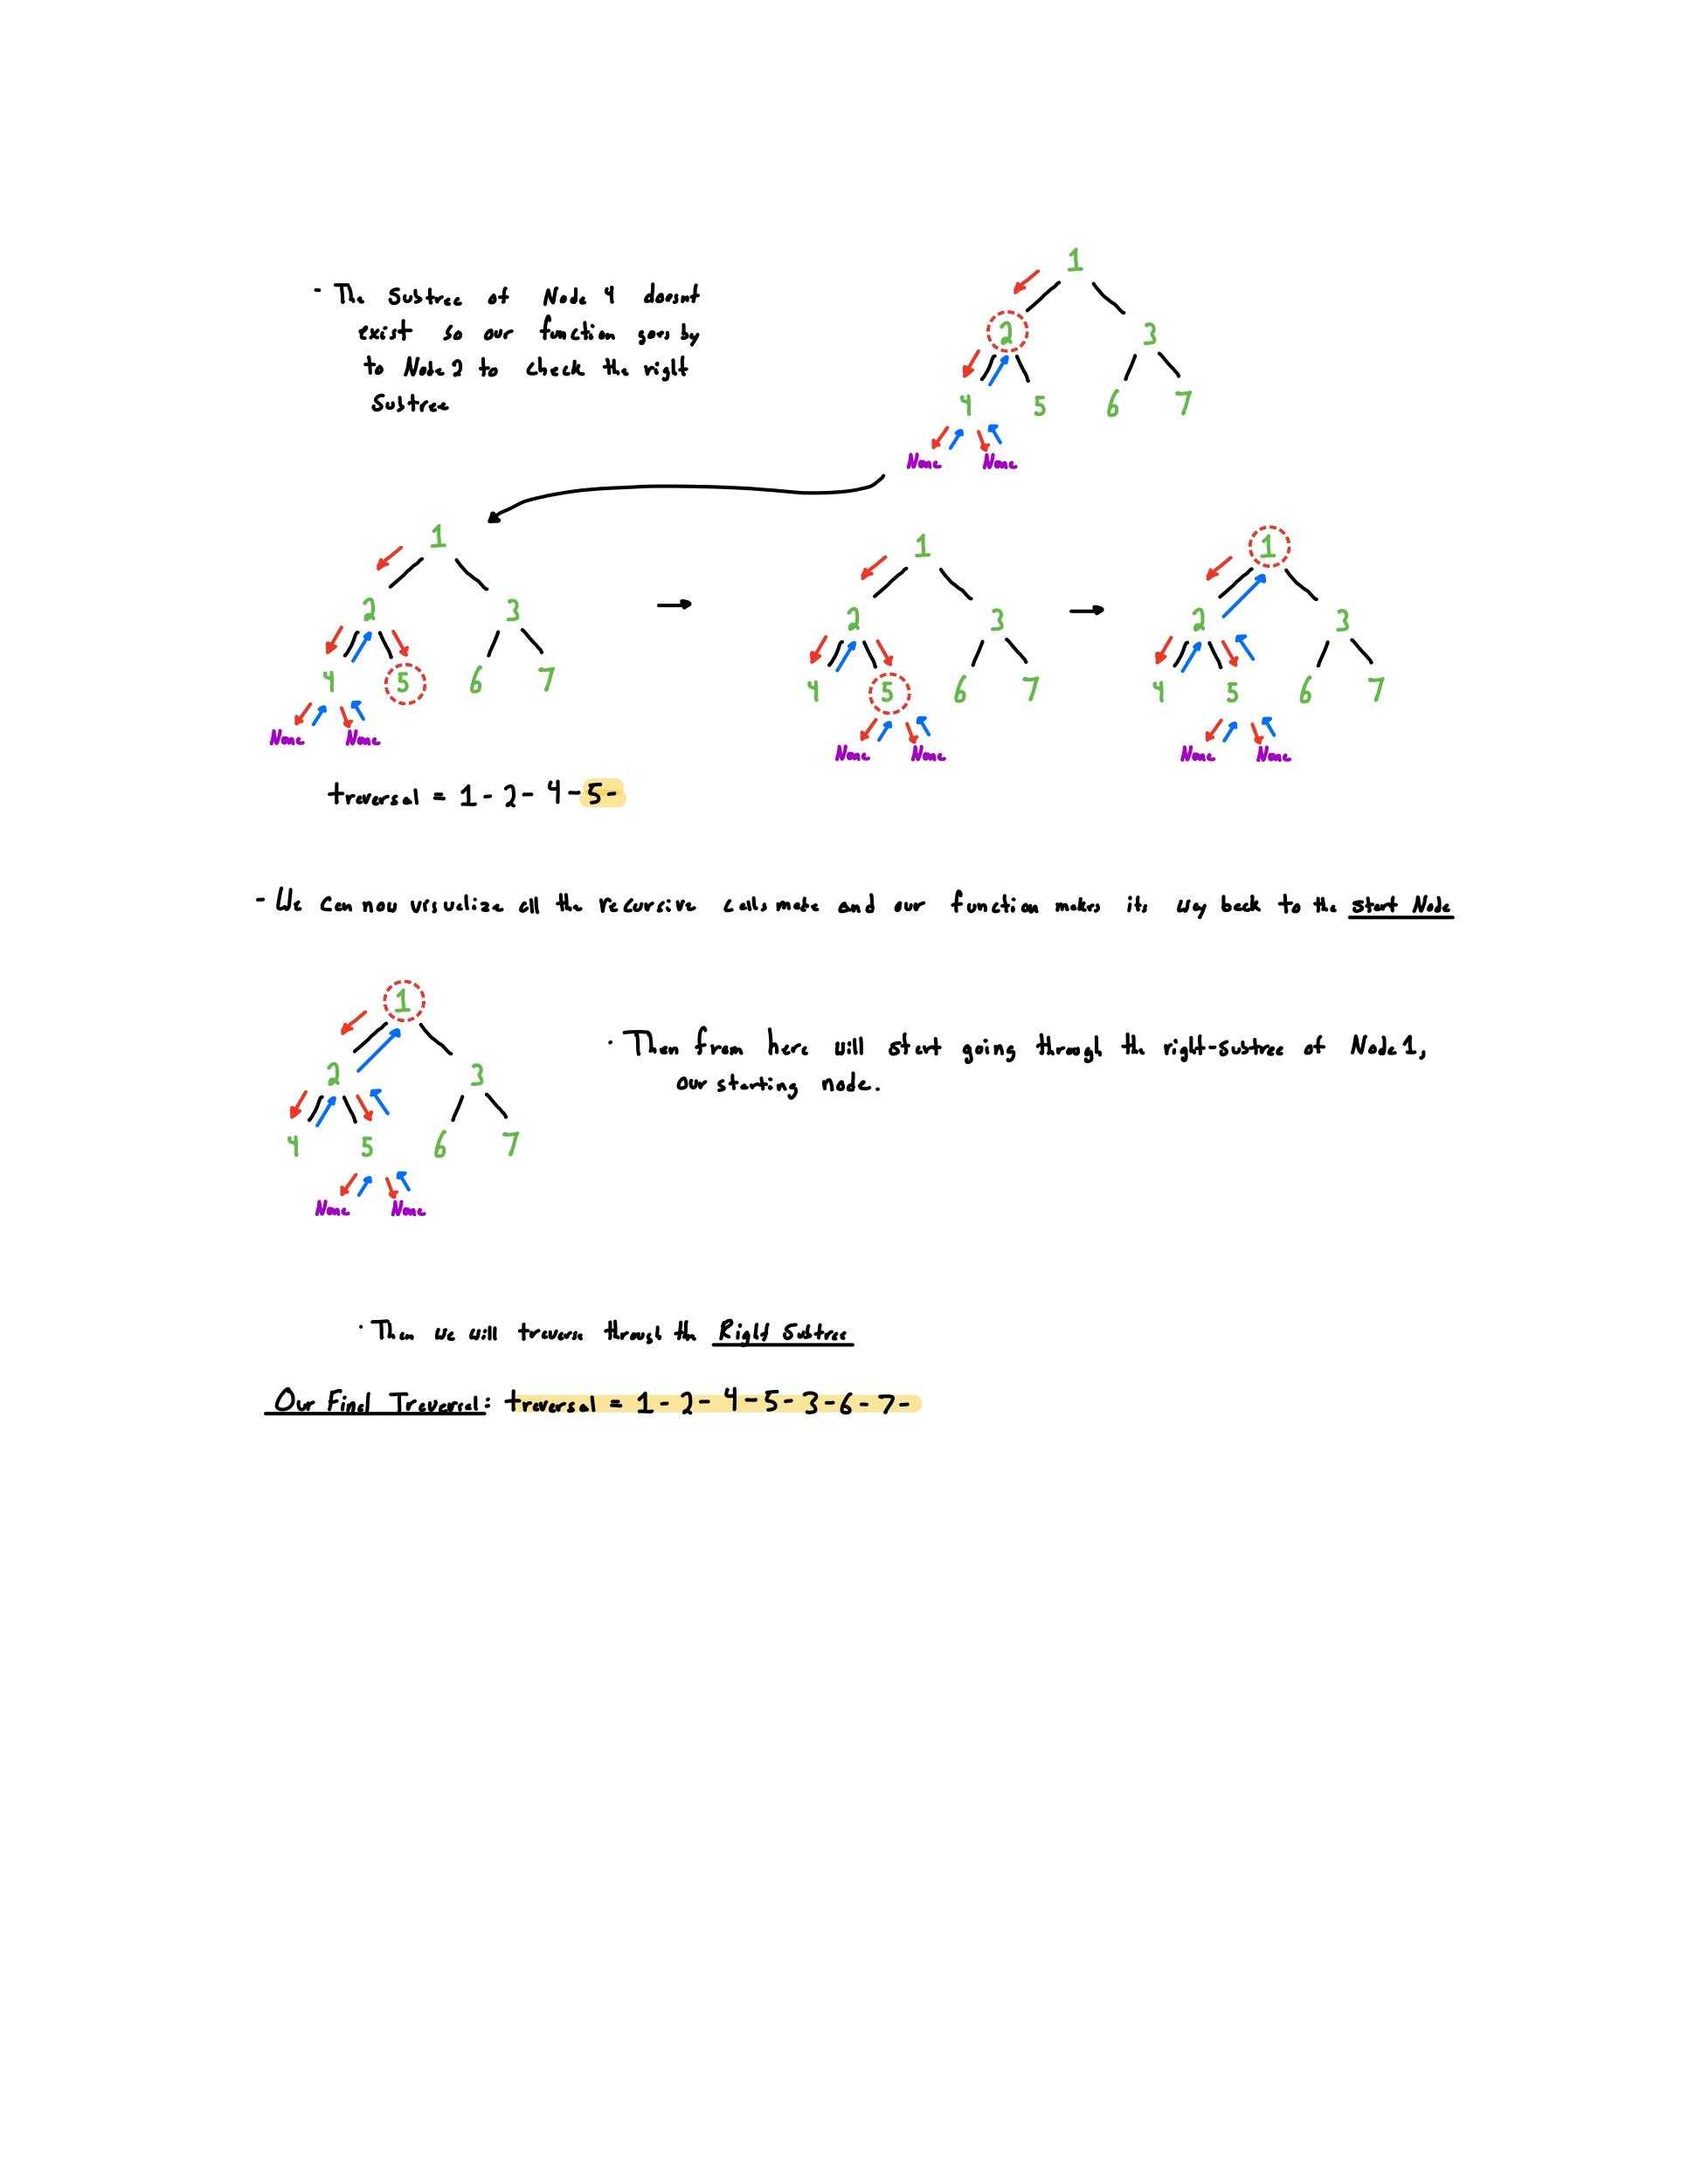 - The Subtree of Node 4 doesnt
exist so our function goes by
to Node 2 to check the right
Subtree
1
2 3
4 5 6 7
None None
1
2 3
4 5 6 7
None None
traversal = 1 - 2 - 4 - 5 -
1
2 3
4 5 6 7
None None
1
2 3
4 5 6 7
None None
- We can now visualize all the recursive calls made and our function makes its way back to the start Node
1
2 3
4 5 6 7
None None
· Then from here will start going through the right-subtree of Node 1,
our starting node.
· Then we will traverse through th Right Subtree
Our Final Traversal: traversal = 1 - 2 - 4 - 5 - 3 - 6 - 7 -